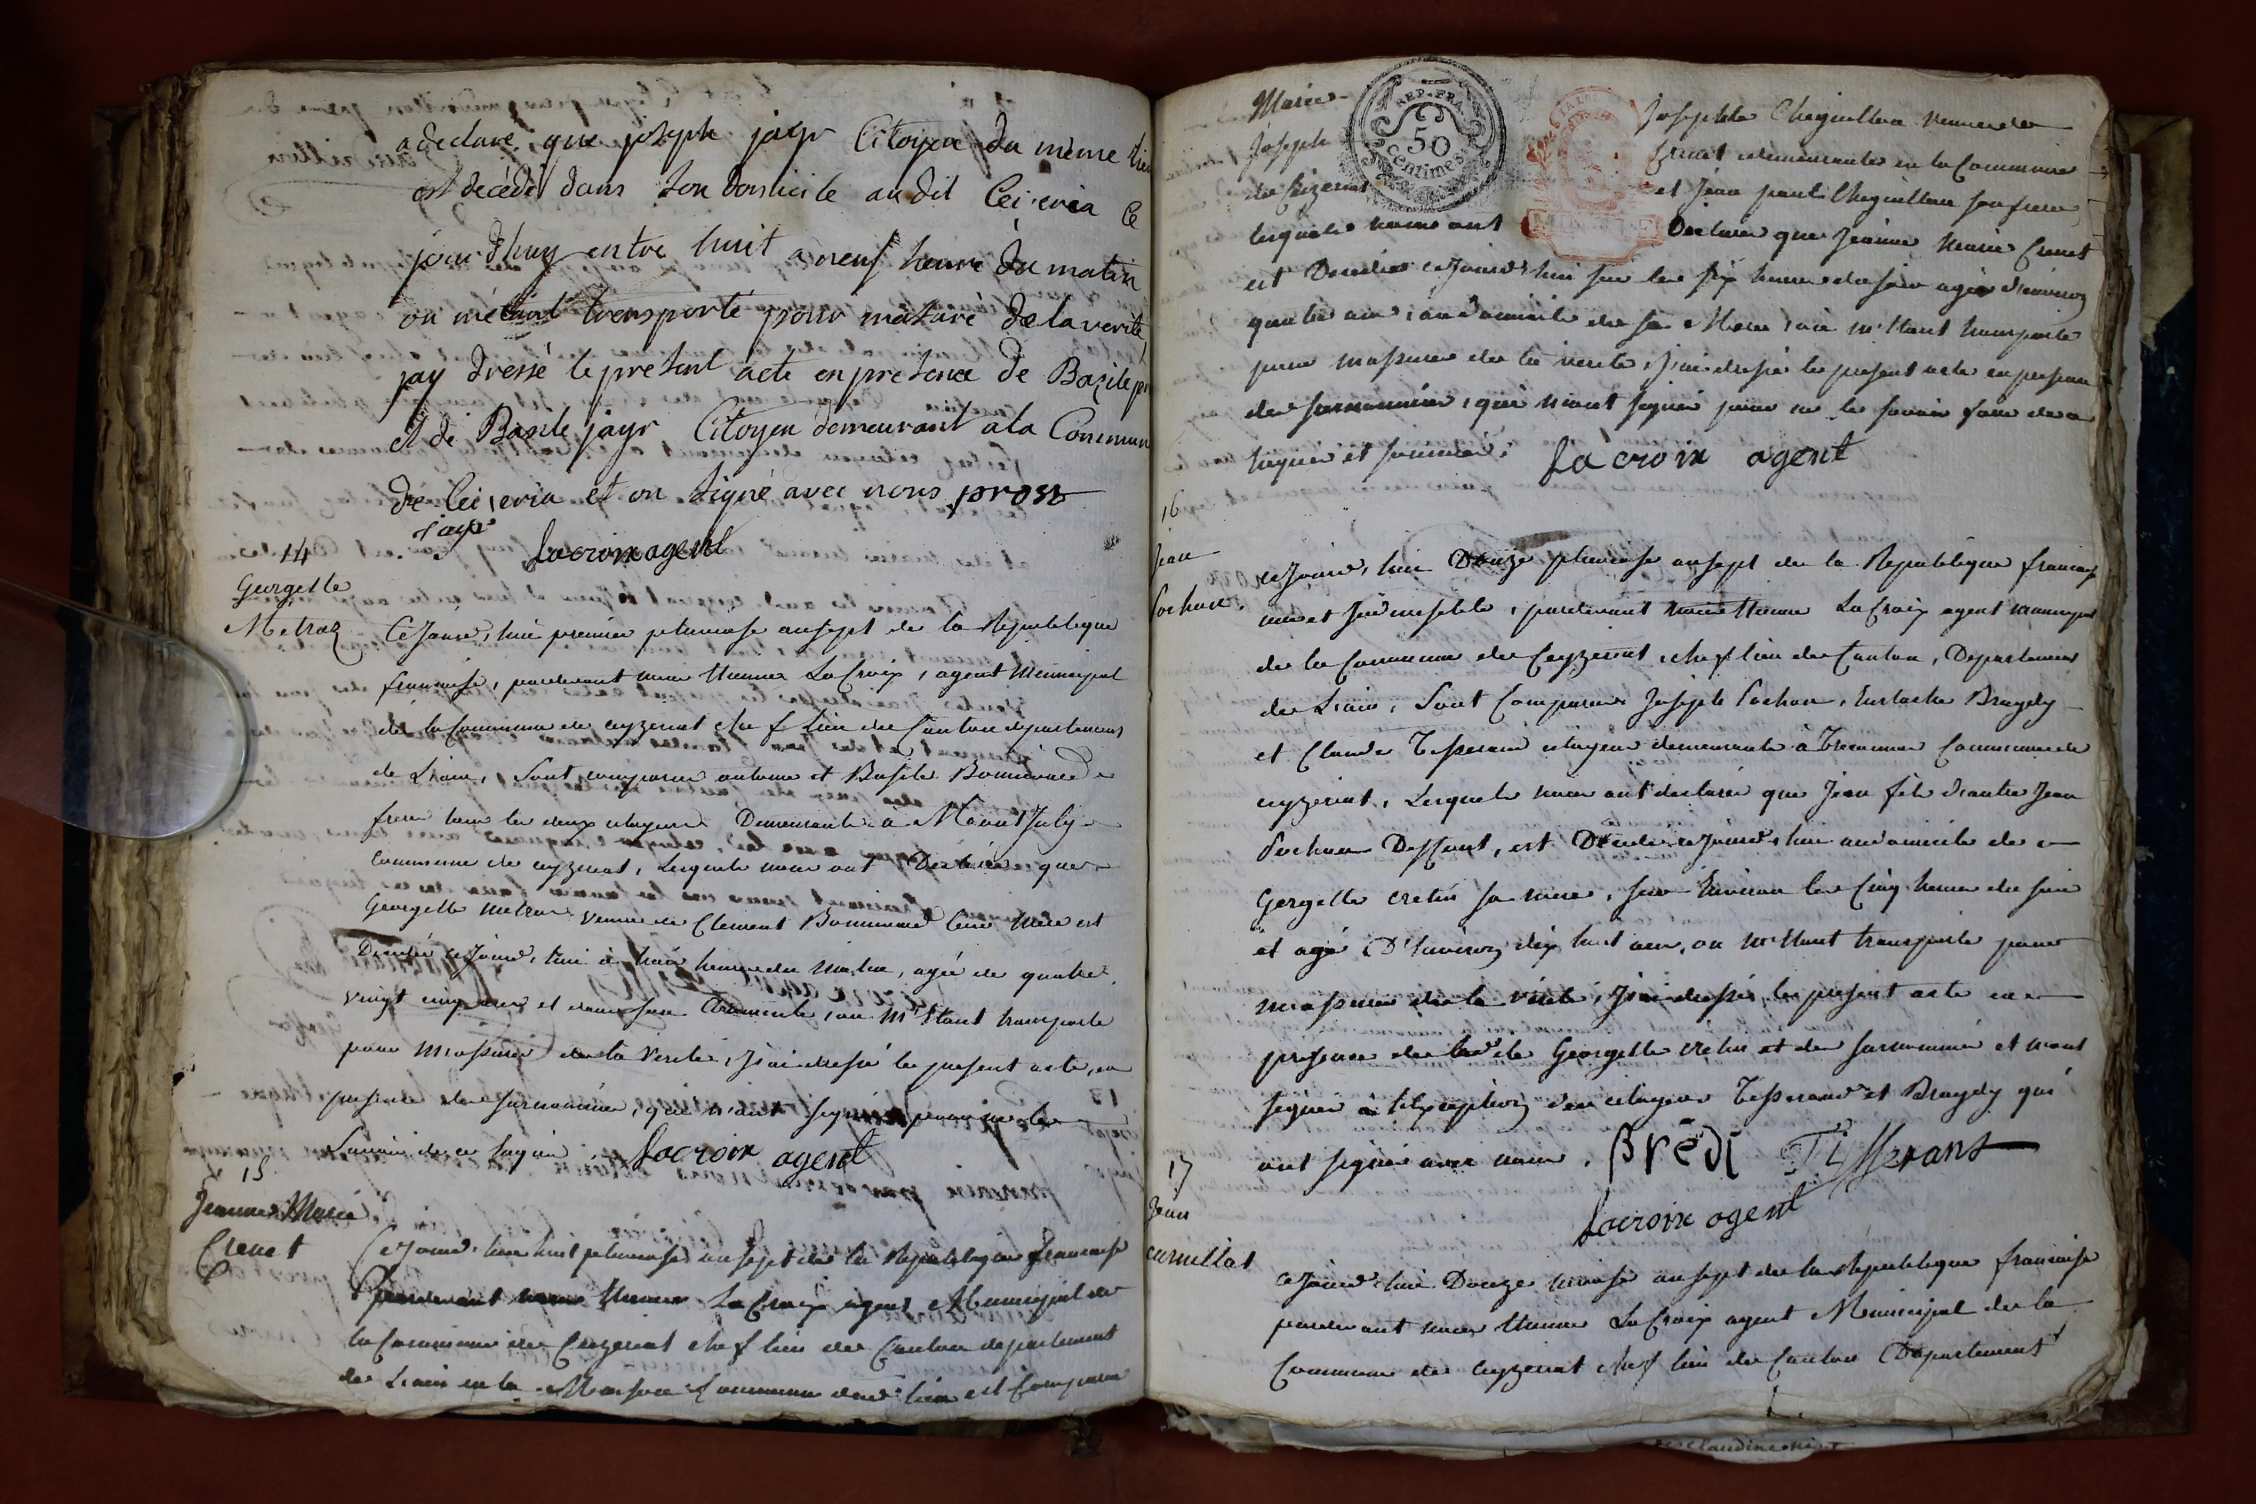 a declaré que joseph jayr Citoyen du même lieu
est decédé dans son domicile au dit Ceiseria ce
jour d'huy entre huit a neuf heure du matin
ou métant transporté pour massuré de la verité
jay dressé le present acte en presence de Bazile
et de Basile jayr Citoyen demeurant a la Commun
de Ceiseria et on signé avec nous pross
jayr
Lacroix agent
14
Gorgette
Metraz
Cejourd'hui premier pluviose an sept de la Republique
francaise, pardevant nous Etienne LaCroix, agent Municipal
de la Commune de ceyzeriat chef lieu de Canton departement
de Lain, Sont comparus antoine et Basile Bonnivard
frere tous les deux citoyens Demeurants à Montjuly
Commune de ceyzeriat, Lesquels nous ont Declaré que
Georgette metraz veuve de Clement Bonnivard leur Mere est
Decedée cejourd'hui à trois heures du matin, agée de quatre
vingt cinq ans et dans son domicile, ou M'Etant transporté
pour M'assurer de la verité, J'ai dressé le present acte, en
presence des surnommés, qui n'ont signé pour ne le
savoir de ce enquis. Lacroix agent
15
Jeanne Marie
Cruet
Cejourd'hui huit pluviose an sept de la Republique francaise
pardevant nous Etienne LaCroix agent Municipal de
la Commune de Ceyzeriat chef lieu de Canton departement
de Lain en la Maison Commune dud. lieu est Comparu
Marie
Joseph
REP. FRA.
50
Centimes
Josephte Chaguillon veuve de
Cruet demeurante en la Commune
de Ceyzeriat et Jean paul Chaguillon son frere
lesquels nous ont Declaré que Jeanne Marie Cruet
est Decedée cejourd'hui sur les six heures du soir agée d'environ
quatre ans, au domicile de sa Mere, où m'Etant transporté
pour m'assurer de la verité, J'ai dressé le present acte en presence
des surnommés, qui n'ont signé pour ne le savoir faire de ce
enquis et sommés. Lacroix agent
16
Jean
Pochon
Cejourd'hui Douze pluviose an sept de la Republique francaise
une et indivisible, pardevant nous Etienne LaCroix agent municipal
de la Commune de Ceyzeriat, chef lieu de Canton, Departement
de Lain, Sont Comparus Joseph Pochon, Eustache Bruyedy
et Claude Tisserand citoyens demeurants à Commune de
ceyzeriat, Lesquels nous ont declaré que Jean fils d'autre Jean
Pochon Deffunt, est Decedé cejourd'hui au domicile de
Gergette cretin sa mere, sur Environ les Cinq heures du soir
et agé D'Environ dix huit ans, ou M'Etant transporté pour
m'assurer de la vérité, J'ai dressé le present acte en
presence de lad. Georgette crétin et des surnommés et n'ont
signé à l'Exception des citoyens Tisserand et Bruyedy qui
ont signé avec nous. Brédi Tisserant
Lacroix agent
17
Jean
curnillot
Cejourd'hui Douze ventose an sept de la Republique francaise
pardevant nous Etienne LaCroix agent Municipal de la
Commune de Ceyzeriat chef lieu de Canton Departement